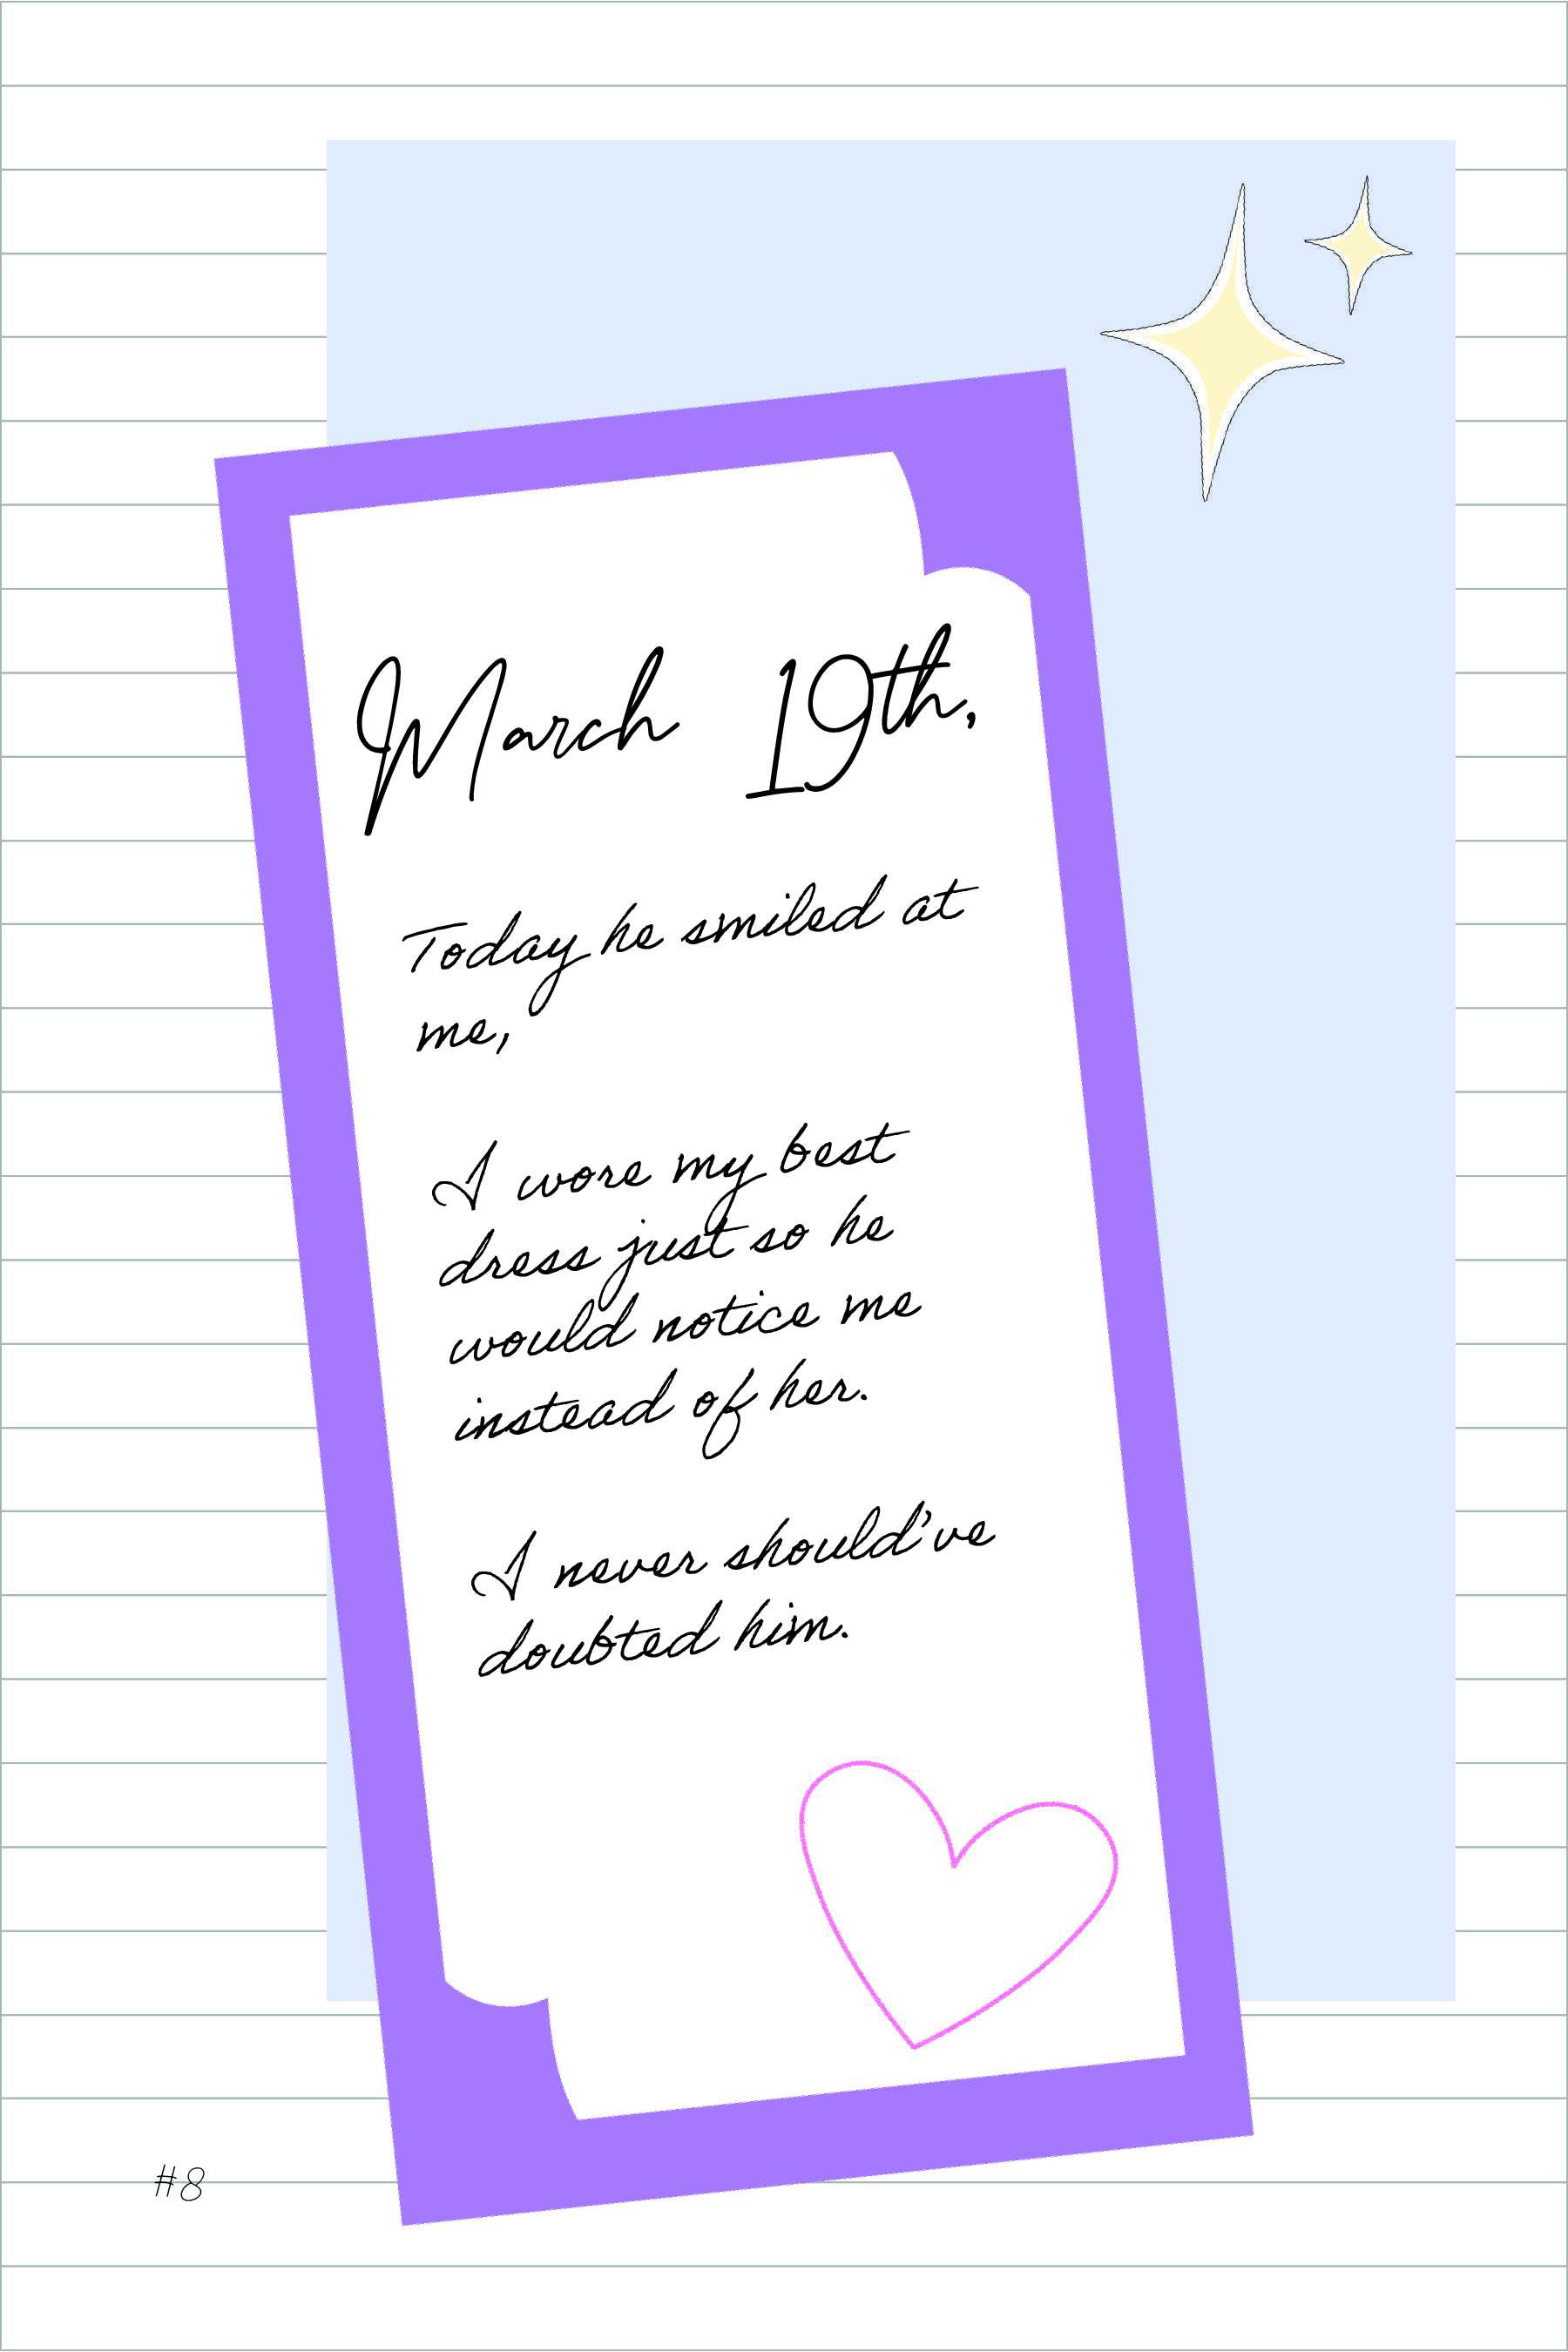 March 19th,
Today he smiled at
me,
I wore my best
dress just so he
would notice me
instead of her.
I never should've
doubted him.
#8